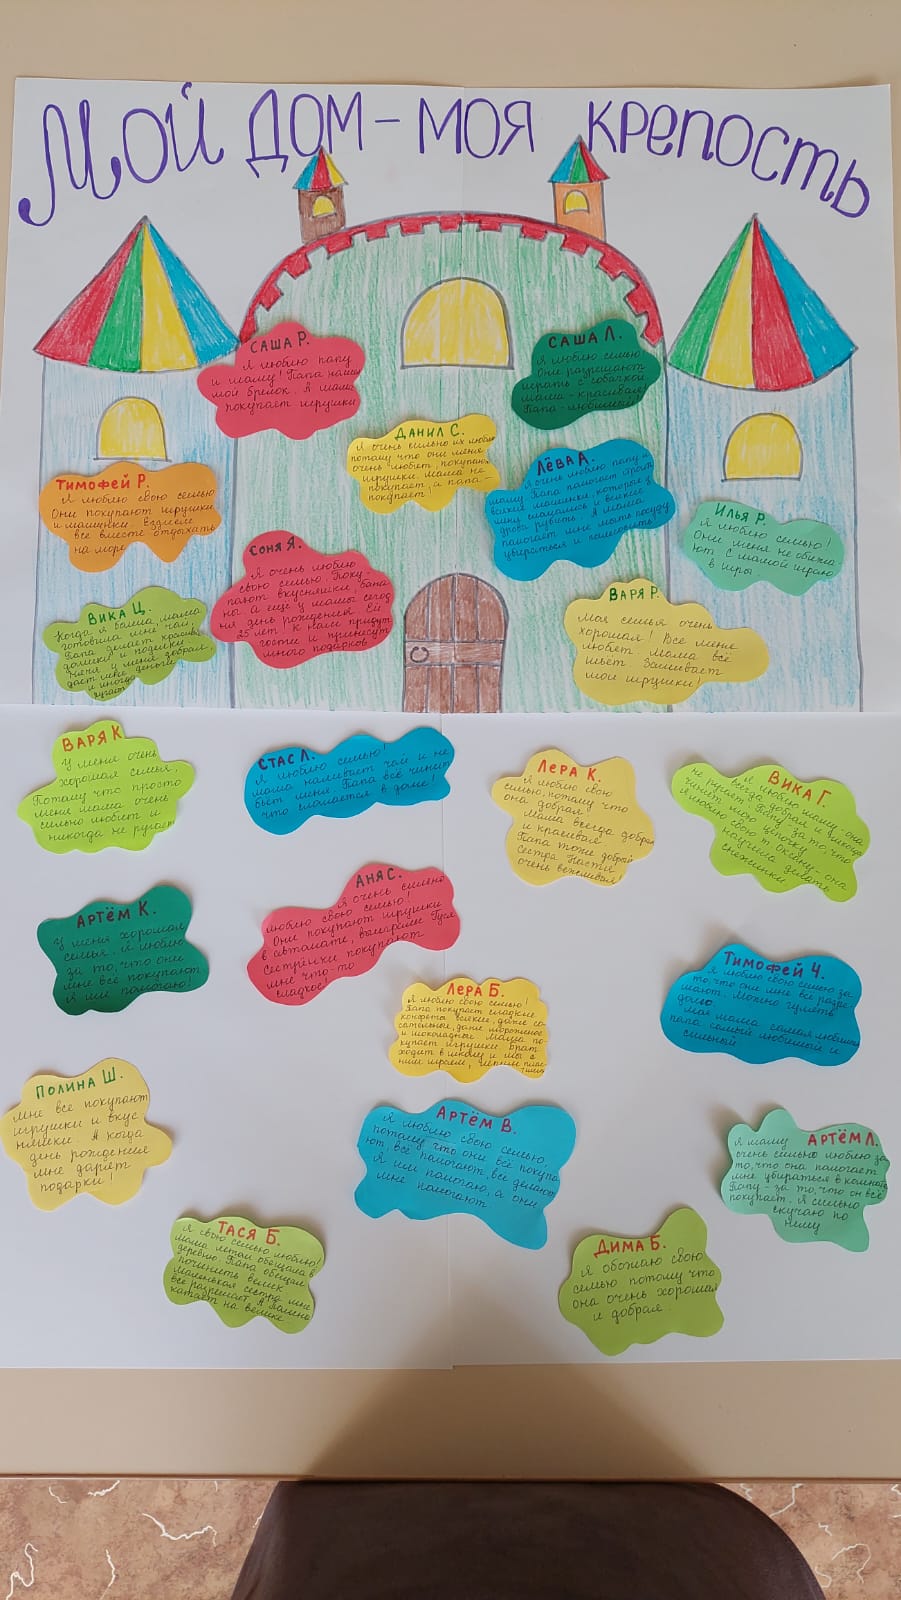 Мой дом - моя крепость
Саша Р.
Я люблю папу
и маму! Папа нашёл
мой брелок. А мама
покупает игрушки
Саша Л.
Я люблю семью
Они разрешают
играть с собакой
Мама - красивая,
Папа - любимый!
Данил С.
Я очень сильно их люблю
потому что они меня
очень любят, покупают
игрушки. Мама не
покупает, а папа -
покупает!
Лёва А.
Я очень люблю папу и
маму. Папа помогает
всякие машинки, которые у
меня сломались и всякие
дрова рубить. А мама
помогает мне мыть посуду
убираться и
Тимофей Р.
Я люблю свою семью
Они покупают игрушки
и машинки. Ездиели
все вместе отдыхать
на море
Илья Р.
Я люблю семью!
Они меня не обижа
ют. С мамой играю
в игры.
Соня Я.
Я очень люблю
свою семью. Поку-
пают вкусняшки, бана
ны а ещё у мамы сегод
ня день рождения. Ей
25 лет. К нам придут
гости и принесут
много подарков
Вика Ц.
Когда я болела, мама
готовила мне чай,
Папа делает красивые
домики и поделки
Женя у меня добрая.
даст мне деньги
и иногда
ругает
Варя Р.
Моя семья очень
хорошая! Все меня
любят. Мама всё
шьёт. Зашивает
мои игрушки!
Варя К
У меня очень
хорошая семья,
Потому что просто
меня мама очень
сильно любит и
никогда не ругает
Стас Л.
Я люблю семью!
Мама наливает чай и не
бьёт меня. Папа всё чинит
что сломается в доме!
Лера К.
Я люблю свою
семью, потому что
она добрая!
Мама всегда добрая
и красивая
Папа тоже добрый
Сестра Настя
очень вежливая!
Вика Г.
Я люблю маму - она
всегда добрая и никогда
не ругает. Папу за то, что
чинит мою цепочку
Я люблю свою т. Оксану - она
научила делать
снежинки
Артём К.
У меня хорошая
семья. Я люблю
за то, что они
мне всё покупают.
Я им помогаю!
Аня С.
Я очень сильно
люблю свою семью!
Они покупают игрушки
в автомате, выиграли
Сестрёнки покупают
мне что-то
сладкое!
Лера Б.
Я люблю свою семью!
Папа покупает сладкие
конфеты всякие, даже со-
сательные, даже мороженое
и шоколадные. Мама по-
купает игрушки. Брат
ходит в школу и мы с
ним играем,
Тимофей Ч.
Я люблю свою семью за
то, что они мне всё разре-
шают. Можно гулять
долго
Моя мама самая любимая
папа самый любимый и
сильный
Полина Ш.
Мне все покупают
игрушки и вкус
няшки. А когда
день рождения
мне дарят
подарки!
Артём В.
Я люблю свою семью
потому что они всё покупа
ют, всё помогают, всё делают
Я им помогаю, а они
мне помогают
Артём Л.
Я маму
очень сильно люблю за
то, что она помогает
мне убираться в комнате
Папу - за то, что он всё
покупает. Я сильно
скучаю по
нему
Тася Б.
Я свою семью люблю!
Мама летом обещала в
деревню. Папа обещал
починить велик
Маленькая сестра мне
всё разрешает. А Полина
катает на велике
Дима Б.
Я обожаю свою
семью потому что
она очень хорошая
и добрая.